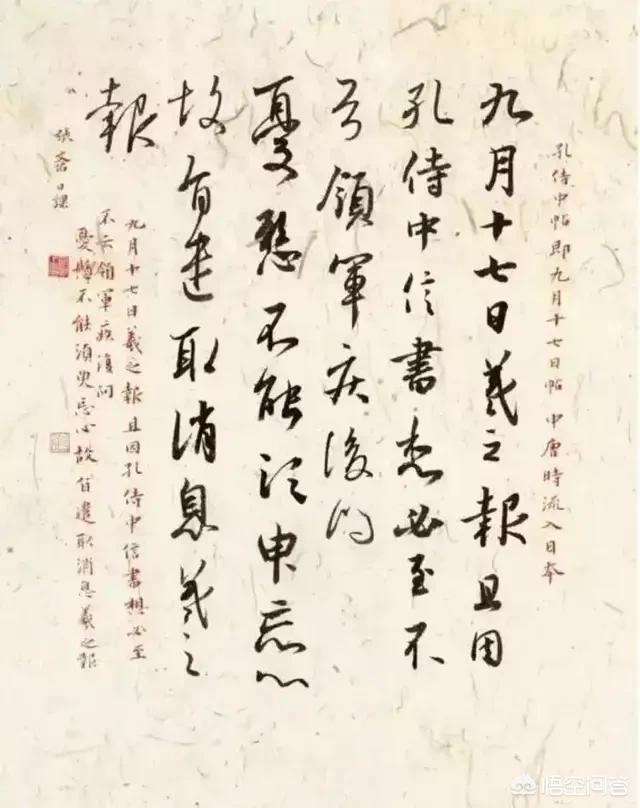 孔侍中帖即九月十七日帖 中唐時流入日本
九月十七日羲之報且因
孔侍中信書想必至不
云領軍疾後問
憂懸不能須臾忘心
故旨遣取消息羲之
報
九月十七日羲之報且因孔侍中信書想必至
不云領軍疾復問
憂懸不能須臾忘心故旨遣取消息羲之報
日課
悟空问答